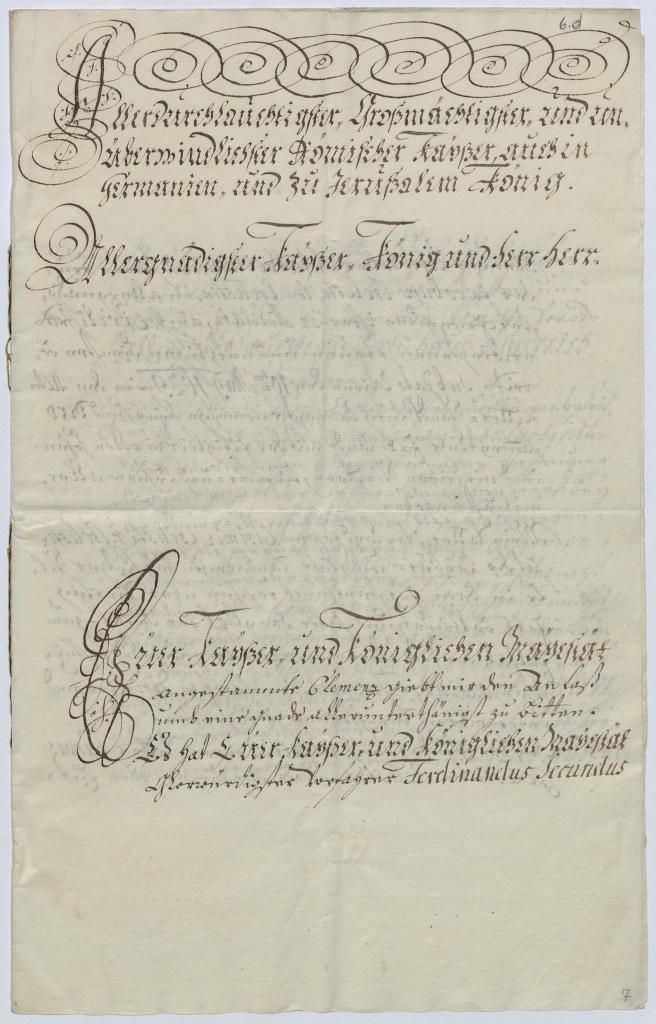 6. d
Allerdurchlauchtigster, Großmächtigster, und un,
überwindlichster Römischer Kayßer, auch in
Germanien, und zu Jerußalem König.
Allergnädigster Kayßer, König und Herr Herr.
Eüer Kayßer, und Königlichen Mayestät
angestammte Clemenz giebt mir den Anlaß
umb eine gnade allerunterthänigst zu bitten.
Es hat Eüer, Kayßer, und Königlichen Mayestät
Glorwürdigster Vorfahrer Ferdinandus Secundus
7